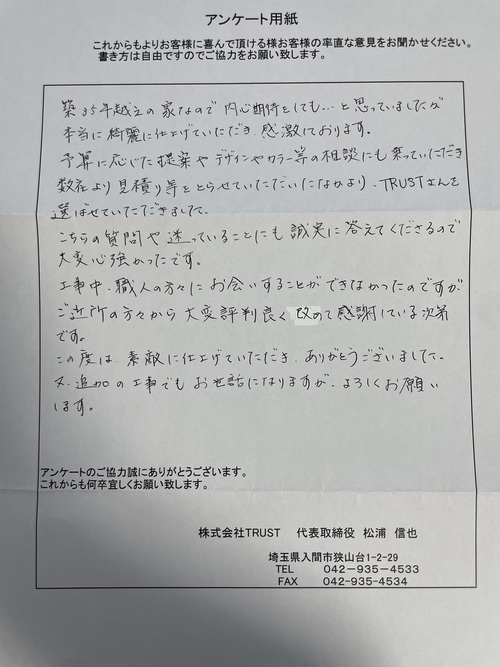 アンケート用紙
これからもよりお客様に喜んで頂ける様お客様の率直な意見をお聞かせください。
書き方は自由ですのでご協力をお願い致します。
築35年越えの家なので内心期待をしても…と思っていましたが
本当に綺麗に仕上げていただき、感激しております。
予算に応じた提案やデザインやカラー等の相談にも乗っていただき
数社より見積り等をとらせていただいたなかより、TRUSTさんを
選ばせていただきまして、
こちらの質問や迷っていることにも誠実に答えてくださるので
大変心強かったです。
工事中、職人の方々にお会いすることができなかったのですが
ご近所の方々から大変評判良く改めて感謝している次第
です。
この度は、素敵に仕上げていただき、ありがとうございました。
又、追加の工事でもお世話になりますが、よろしくお願い
します。
アンケートのご協力誠にありがとうございます。
これからも何卒宜しくお願い致します。
株式会社TRUST 代表取締役 松浦 信也
埼玉県入間市狭山台1-2-29
TEL 042-935-4533
FAX 042-935-4534